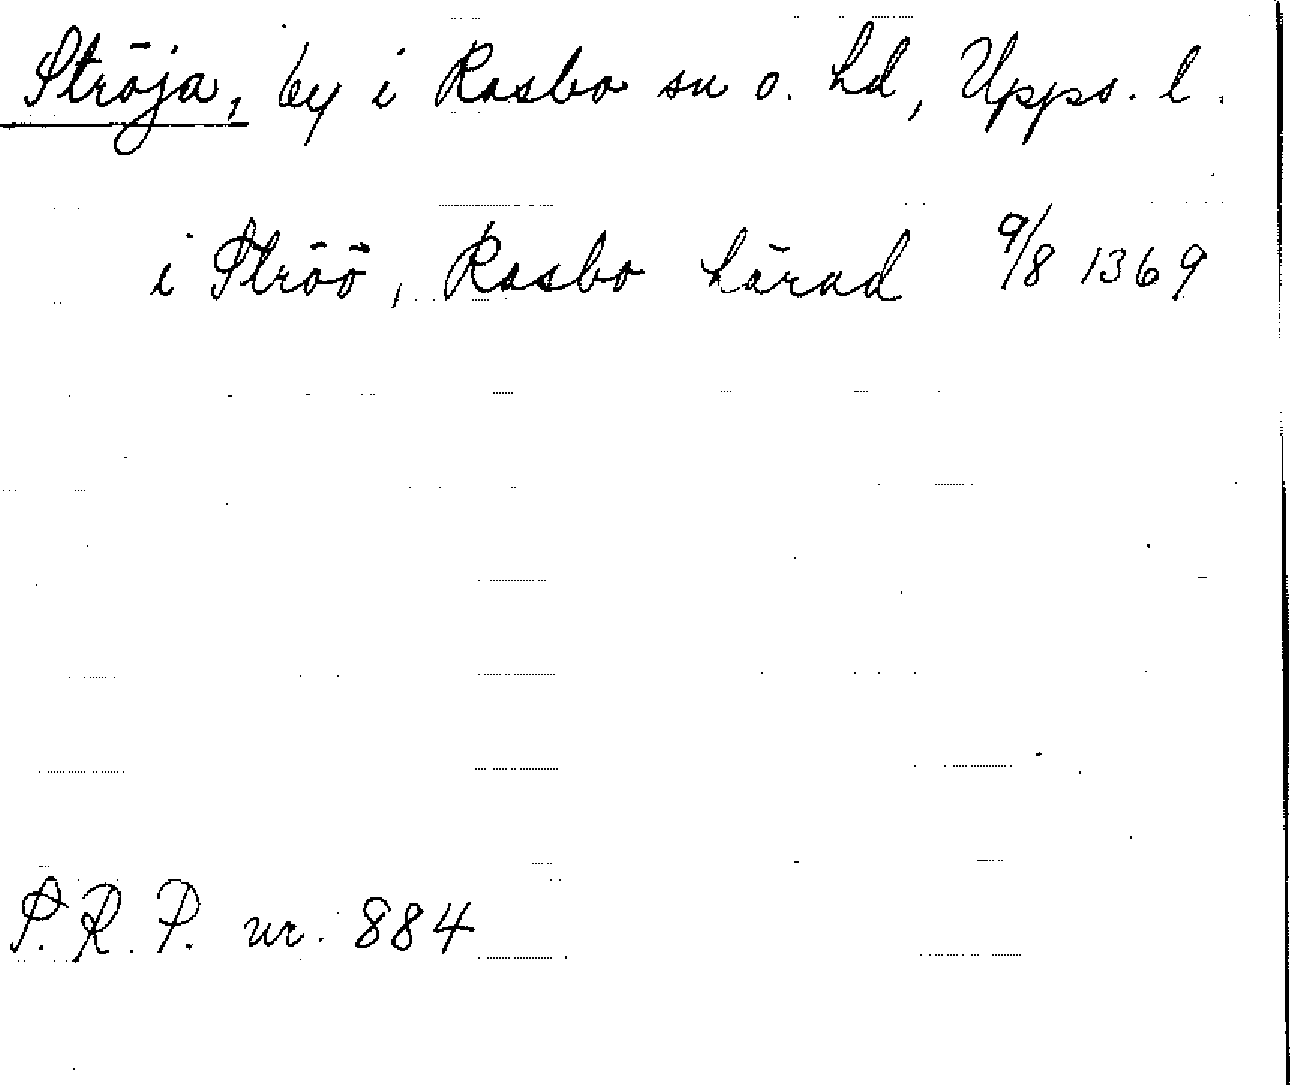 Ströja, by i Rasbo sn o. hd, Upps. l.
i Ströö, Rasbo härad 9/8 1369
S.R.P. nr. 884